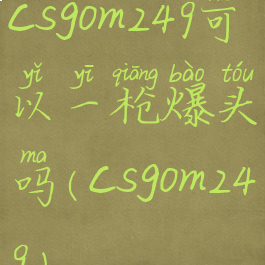 csgom249可
yǐ yī qiāng bào tóu
以一枪爆头
ma
吗(csgom24
9)